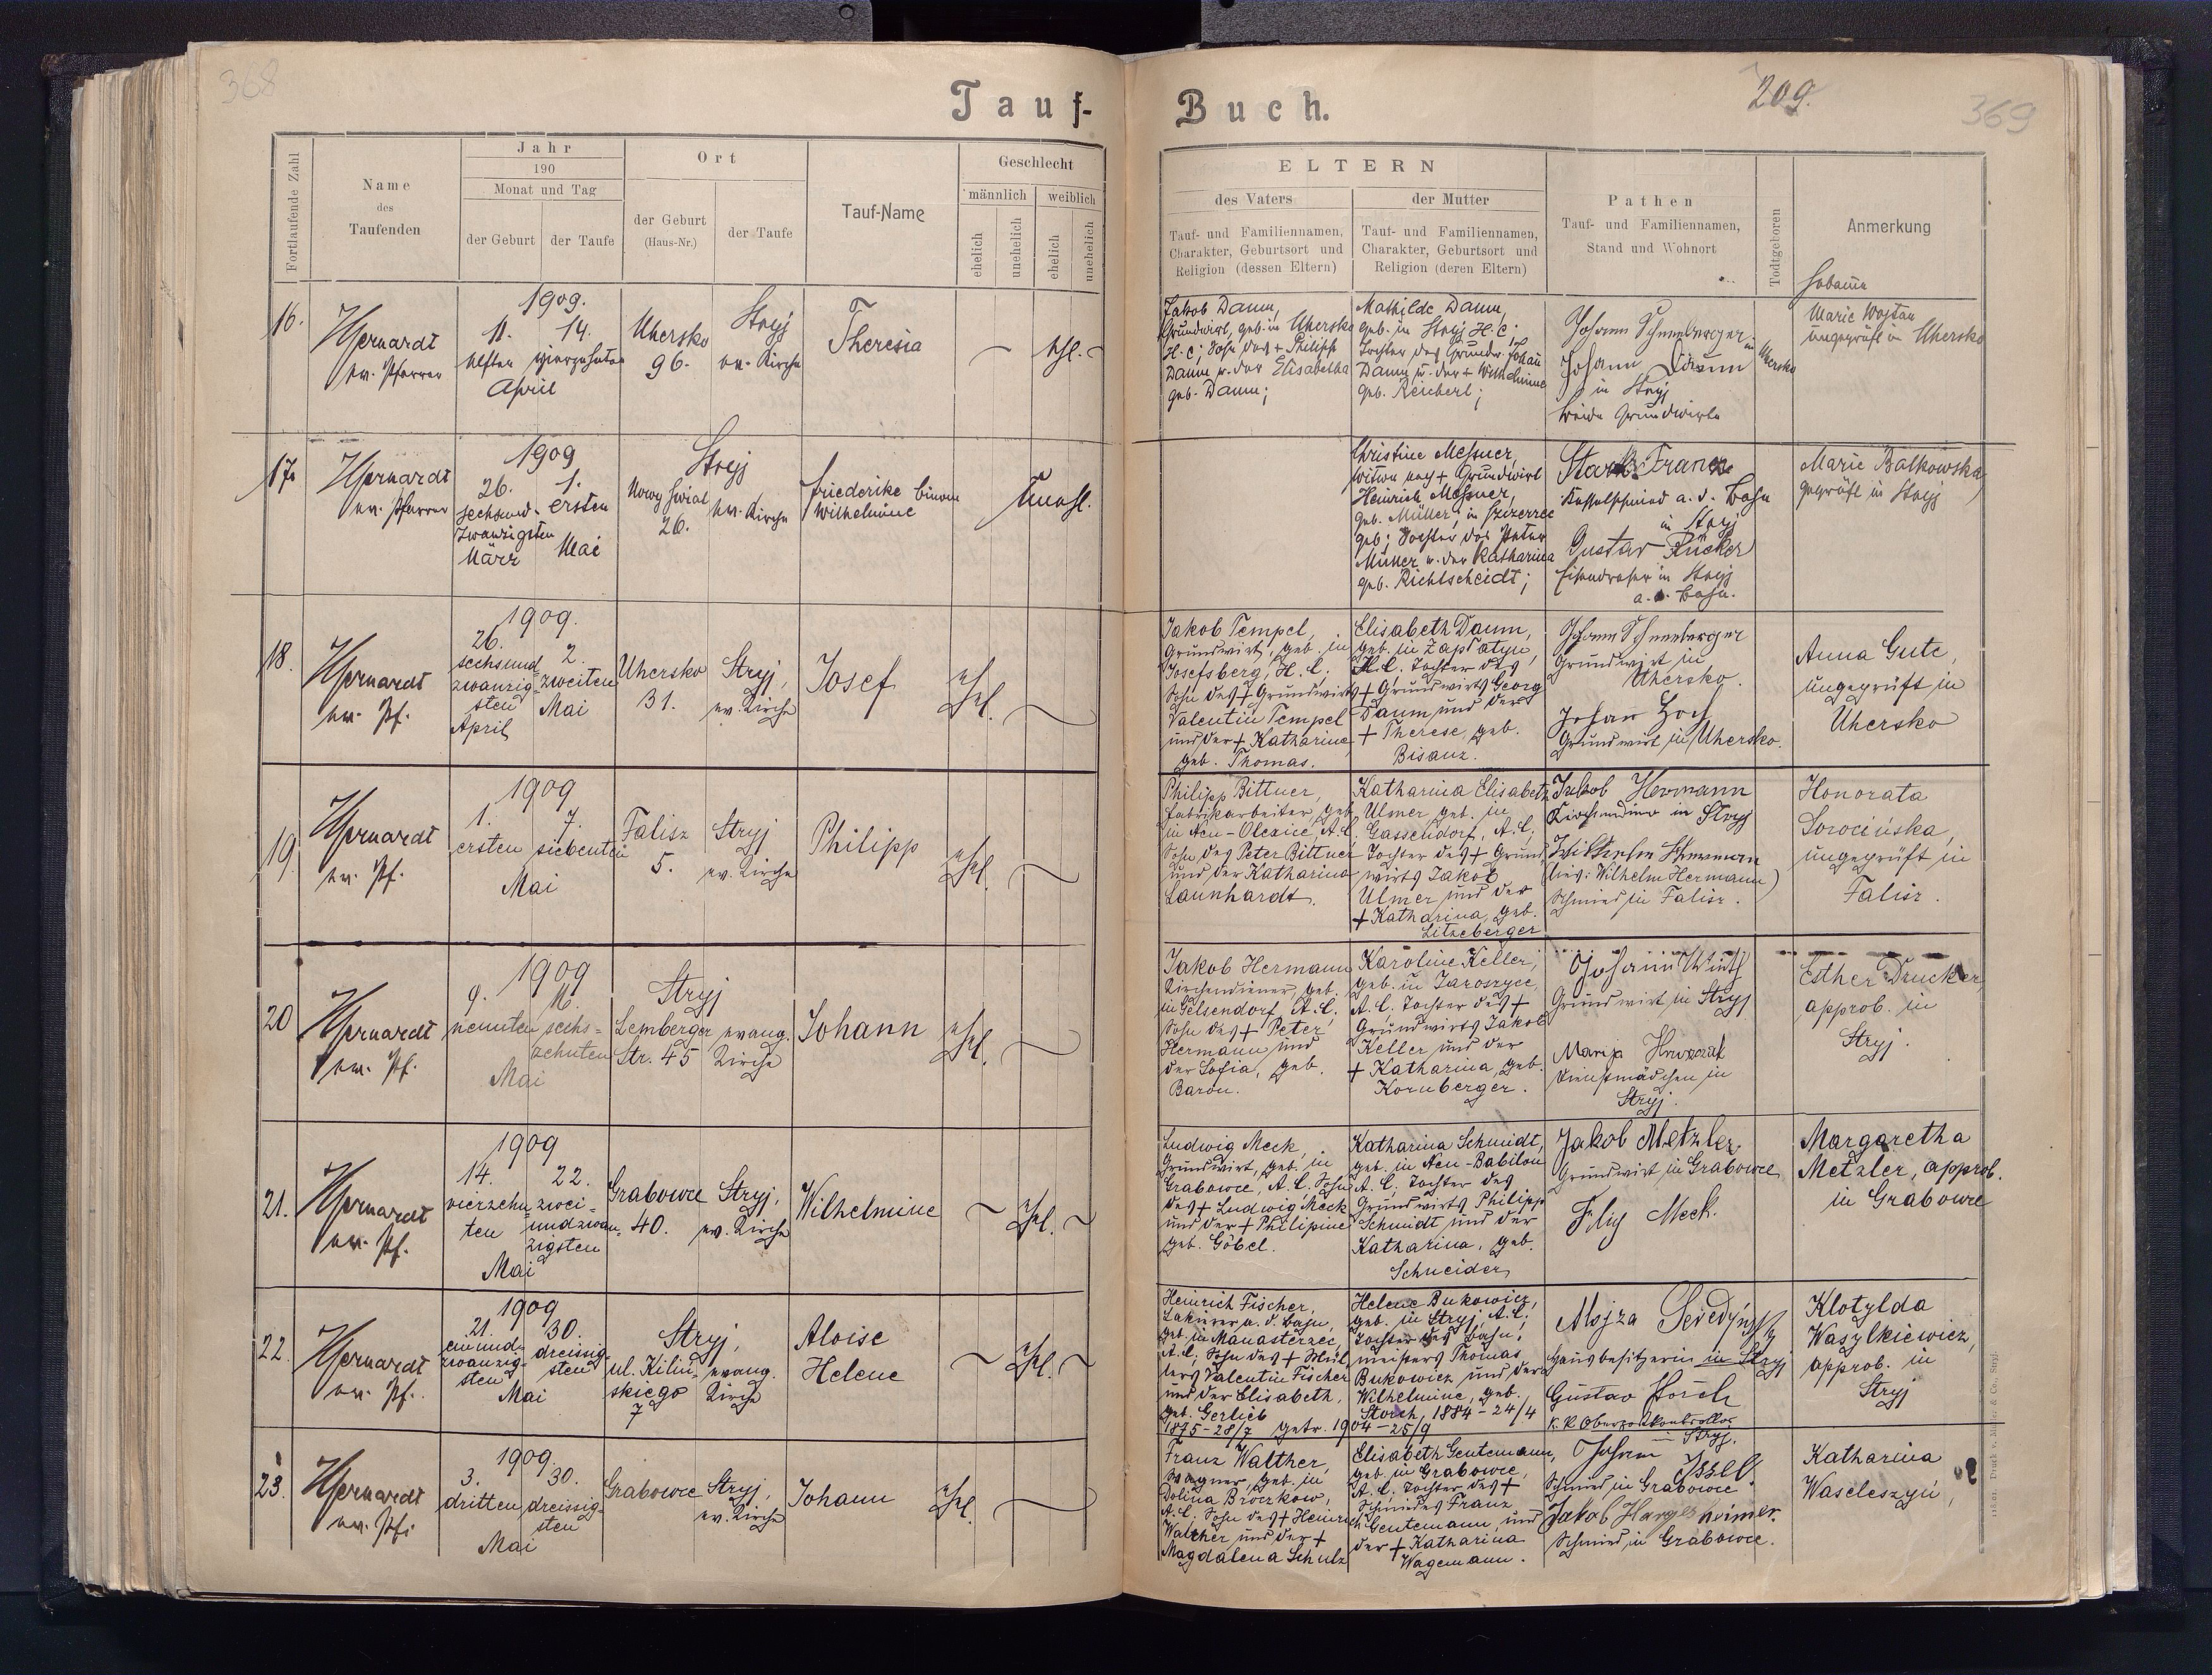 368
Tauf-
Fortlaufende Zahl
Name
des
Taufenden
Jahr
190
Monat und Tag
der Geburt
der Taufe
Ort
der Geburt
(Haus-Nr.)
der Taufe
Tauf-Name
Geschlecht
männlich
weiblich
ehelich
unehelich
ehelich
unehelich
16.
ev. Pfarrer
1909.
11. 14.
elften vierzehnten
April
Uhersko
96.
Stryj
ev. Kirche
Theresia
ehl.
17.
ev. Pfarrer
1909
26. 1.
sechsund- ersten
zwanzigsten
März Mai
Nowy Swiat
26.
Stryj
ev. Kirche
Friederike
Wilhelmine
unehl.
18.
ev. Pf.
1909.
26. 2.
sechsund- zweiten
zwanzig-
sten Mai
April
Uhersko
31.
Stryj,
ev. Kirche
Josef
ehl.
19.
ev. Pf.
1909
1. 7.
ersten siebenten
Mai
Falisz
5.
Stryj
ev. Kirche
Philipp
ehl.
20
ev. Pf.
1909
9. 16.
neunten sechs-
zehnten
Mai
Stryj
Lemberger evang.
Str. 45 Kirche
Johann
ehl.
21.
ev. Pf.
1909
14. 22.
vierzehn- zwei-
ten undzwan-
zigsten
Mai
Grabowce
40.
Stryj,
ev. Kirche
Wilhelmine
ehl.
22.
ev. Pf.
1909
21. 30.
einund- dreissig-
zwanzig- sten
sten
Mai
Stryj,
ul. Kilin- evang.
skiego Kirche
7
Aloise
Helene
ehl.
23.
ev. Pf.
1909.
3. 30.
dritten dreissig-
sten
Mai
Grabowce
Stryj,
ev. Kirche
Johann
ehl.
Buch.
209.
369
ELTERN
des Vaters
Tauf- und Familiennamen,
Charakter, Geburtsort und
Religion (dessen Eltern)
der Mutter
Tauf- und Familiennamen,
Charakter, Geburtsort und
Religion (deren Eltern)
Pathen
Tauf- und Familiennamen,
Stand und Wohnort
Todtgeboren
Anmerkung
Hebamme
Jakob Daum,
Grundwirt, geb. in Uhersko
H.C; Sohn des + Philipp
Daum u. der Elisabetha
geb. Daum;
Mathilde Daum,
geb. in Stryj H.C;
Tochter des Grundw. Johann
Daum u. der + Wilhelmine
geb. Reichert;
Johann Schneeberger in Uhersko
Johann Daum
in Stryj
beide Grundwirte
Marie Wojtan
ungeprüft in Uhersko
Christine Messner,
Witwe nach + Grundwirt
Heinrich Messner,
geb. Müller, in Szczerzec
geb; Tochter des Peter
Müller u. der Katharina
geb. Richtscheidt;
Stark Franz
Kesselschmied a. d. Bahn
in Stryj
Gustav Rücker
Eisendreher in Stryj
a. d. Bahn.
Marie Balkowska,
geprüft in Stryj
Jakob Tempel,
Grundwirt, geb. in
Josefsberg, H.C.
Sohn des + Grundwirts
Valentin Tempel
und der + Katharina,
geb. Thomas.
Elisabeth Daum,
geb. in Zaplatyn,
H.C. Tochter des
+ Grundwirts Georg
Daum und der
+ Therese, geb.
Bisanz.
Johann Schneeberger
Grundwirt in
Uhersko.
Johan Hoch
Grundwirt in Uhersko.
Anna Gute,
ungeprüft in
Uhersko
Philipp Bittner,
Fabrikarbeiter, geb.
in Neu-Olexice, A.C.
Sohn des Peter Bittner
und der Katharina
Launhardt.
Katharina Elisabeth
Ulmer, geb. in
Gassendorf, A.C;
Tochter des + Grund-
wirts Jakob
Ulmer und der
+ Katharina, geb.
Litzeberger
Jakob Hermann
Kirchendiener in Stryj
Wilhelm Hermann
(lies: Wilhelm Hermann)
Schmied in Falisz.
Honorata
Sorocińska,
ungeprüft in
Falisz.
Jakob Hermann
Kirchendiener, geb.
in Gelsendorf A.C.
Sohn des + Peter
Hermann und
der Sofia, geb.
Baron.
Karoline Keller,
geb. in Jaroszyce,
A.C. Tochter des +
Grundwirts Jakob
Keller und der
+ Katharina, geb.
Kornberger.
Johann
Grundwirt in Stryj
Marija
Dienstmädchen in
Stryj.
Esther Drucker,
approb. in
Stryj.
Ludwig Meck,
Grundwirt, geb. in
Grabowce, A.C. Sohn
des + Ludwig Meck
und der + Philipine
geb. Göbel.
Katharina Schmidt,
geb. in Neu-Babilon
A.C; Tochter des
Grundwirts Philipp
Schmidt und der
Katharina, geb.
Schneider
Jakob Metzler,
Grundwirt in Grabowce
Meck.
Margaretha
Metzler, approb.
in Grabowce
Heinrich Fischer,
Lakierer a. d. Bahn,
geb. in Manasterzec,
A.C; Sohn des + Mül-
lers Valentin Fischer
und der Elisabeth,
geb. Gerlieb
1875-28/7 getr. 1904-25/9
Helene Bukowicz,
geb. in Stryj, A.C;
Tochter des Bahn-
meisters Thomas
Bukowicz und der
Wilhelmine, geb.
Storch, 1884-24/4
Hausbesitzerin in Stryj
Gustav
K. K. Oberpostkontrollor
in Stryj.
Klotylda
Wasylkiewicz,
approb. in
Stryj
Franz Walther,
Wagner, geb. in
Dolina Broczkow,
A.C; Sohn des + Heinrich
Walther und der +
Magdalena Schulz
Elisabeth Gentemann,
geb. in Grabowce,
A.C. Tochter des +
Schmiedes Franz
Gentemann, und
der + Katharina
Wagemann.
Johann Issel
Schmied in Grabowce
Jakob Hargesheimer.
Schmied in Grabowce.
Katharina
Waseleszyn,